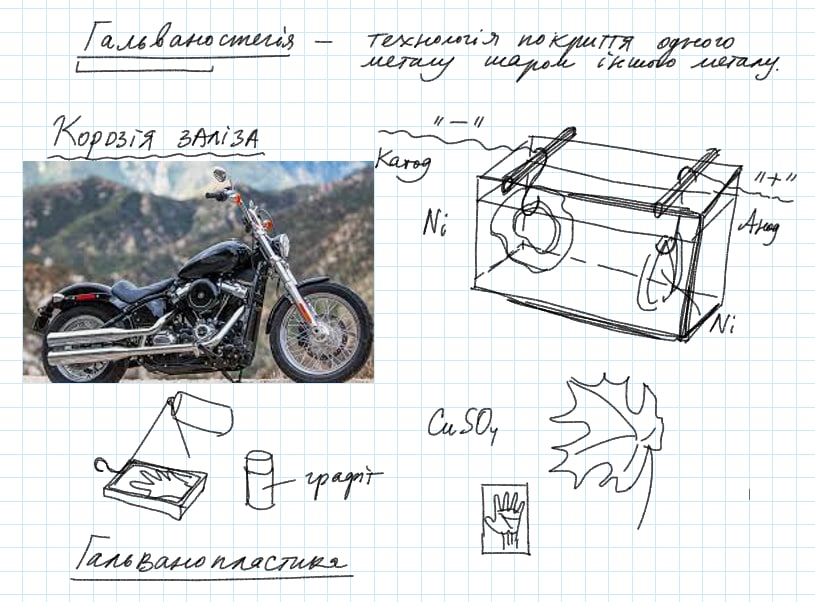 Гальваностегія – технологія покриття одного
металу шаром іншого металу.
Корозія заліза
"–"
Катод
"+"
Ni
Анод
Ni
CuSO₄
графіт
Гальванопластика